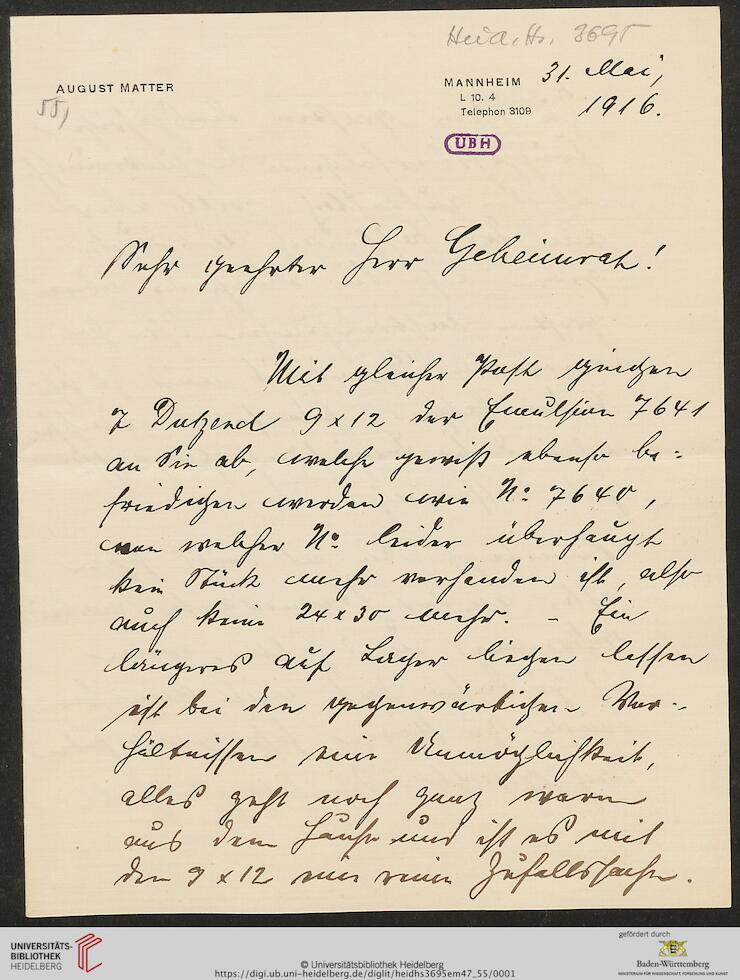 Heid. Hs. 3695
AUGUST MATTER
MANNHEIM
31. Mai,
55,
L 10. 4
1916.
Telephon 3109
UBH
Sehr geehrter Herr Geheimrat!
Mit gleicher Post gingen
7 Dutzend 9 x 12 der Emulsion 7641
an Sie ab, welche gewiß ebenso be-
friedigen werden wie No 7640,
von welcher No leider überhaupt
kein Stück mehr vorhanden ist, also
auch keine 24 x 30 mehr. – Ein
längeres auf Lager liegen lassen
ist bei den gegenwärtigen Ver-
hältnissen eine Unmöglichkeit,
alles geht noch ganz warm
aus dem Hause und ist es mit
den 9 x 12 nur reine Zufallssache.
UNIVERSITÄTS-
BIBLIOTHEK
HEIDELBERG
© Universitätsbibliothek Heidelberg
https://digi.ub.uni-heidelberg.de/diglit/heidhs3695em47_55/0001
gefördert durch
Baden-Württemberg
MINISTERIUM FÜR WISSENSCHAFT, FORSCHUNG UND KUNST